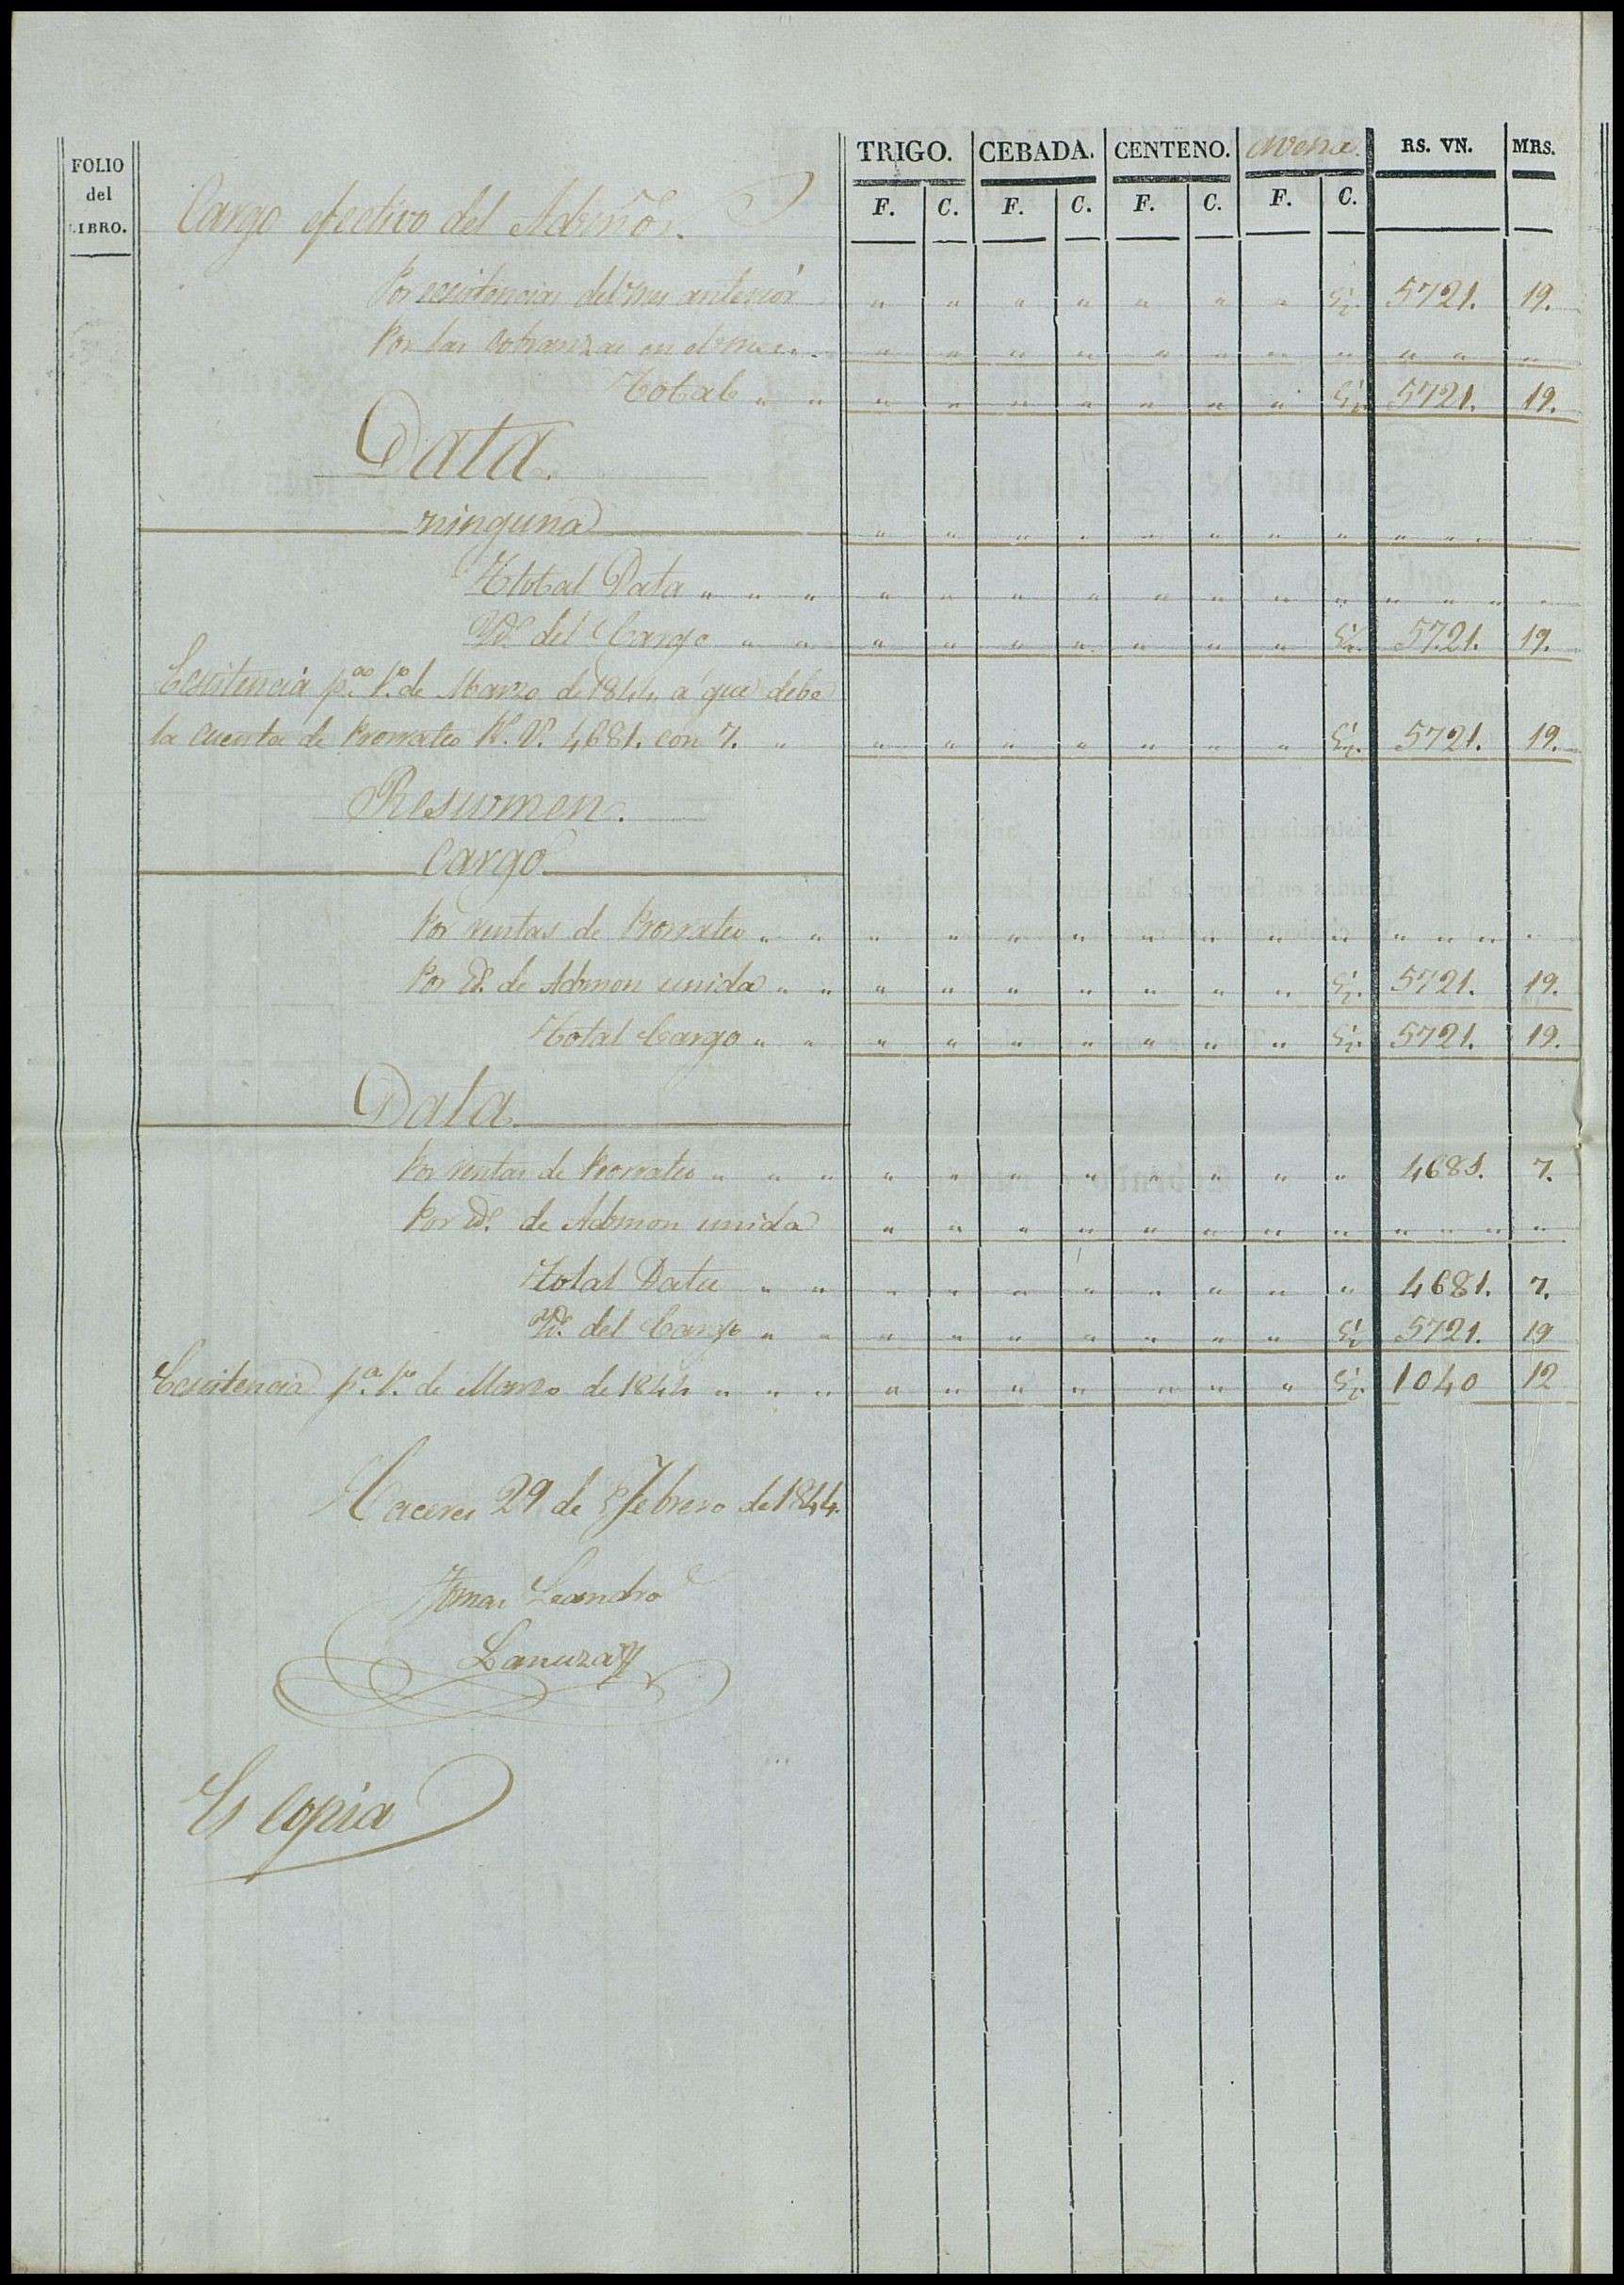 FOLIO del LIBRO.
TRIGO. CEBADA. CENTENO. Avena. RS. VN. MRS.
F. C. F. C. F. C. F. C.
Cargo efectivo del Admñor.
Por ecsistencias del mes anterior " " " " " " " 5721. 19.
Por las cobranzas en el mes. " " " " " " " " " " "
Total " " " " " " " " " 5721. 19.
Data.
ninguna " " " " " " " " " " "
Total Data " " " " " " " " " " " " " "
Yd. del Cargo " " " " " " " " " 5721. 19.
Ecsistencia pa. 1o. de Marzo de 1844 a que debe
la cuenta de Prorrateo Rs. Vn. 4681. con 7. " " " " " " " " 5721. 19.
Resumen.
Cargo
Por rentas de Prorrateo " " " " " " " " " " " " "
Por Yd. de Admon unida " " " " " " " " " 5721. 19.
Total Cargo " " " " " " " " " 5721. 19.
Data
Por rentas de Prorrateo " " " " " " " " " " " 4681. 7.
Por Yd. de Admon unida " " " " " " " " " " " "
Total Data " " " " " " " " " " 4681. 7.
Yd. del Cargo " " " " " " " " " 5721. 19
Ecsistencia pa. 1o. de Marzo de 1844 " " " " " " " " " " 1040 12
Caceres 29 de Febrero de 1844.
Tomas Leandro
Lanuza
Es Copia